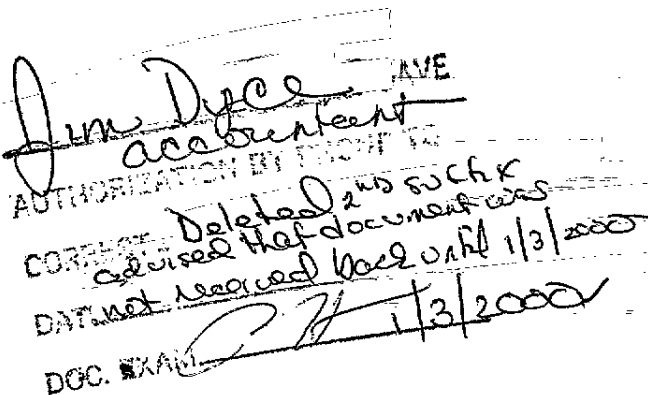 Jim Dyce AVE
accountant
AUTHORIZATION BY PHONE TO
CORRECT Deleted 2ND suffix
advised that document was
DATE not received back until 1/3/2000
DOC. EXAM 1/3/2000